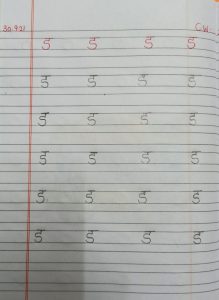 30.9.21 C.W.
ड ड ड ड
ड ड ड ड
ड ड ड ड
ड ड ड ड
ड ड ड ड
ड ड ड ड